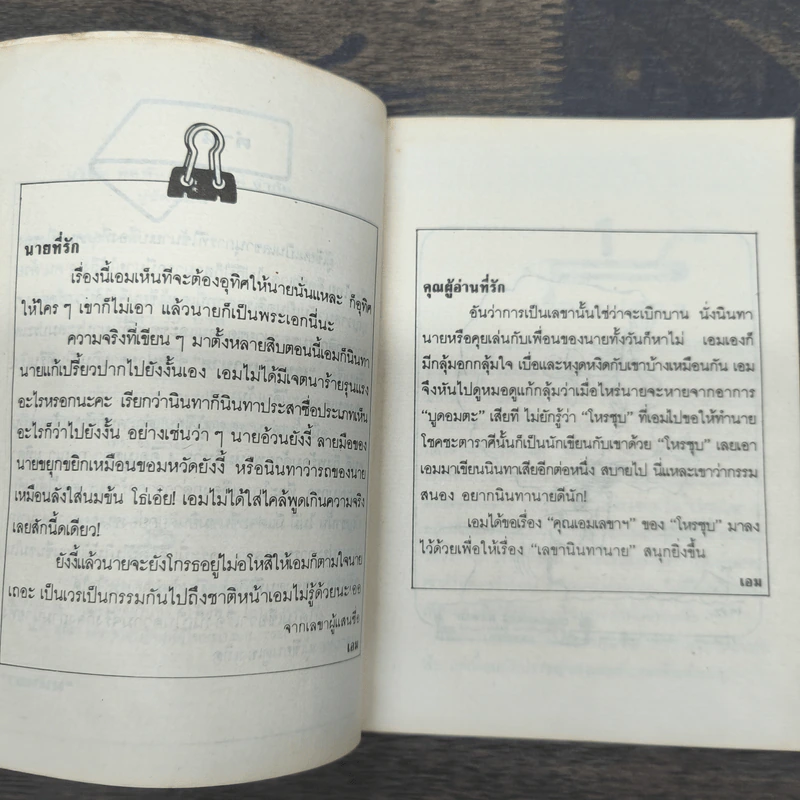 นายที่รัก
เรื่องนี้เอมเห็นทีจะต้องอุทิศให้นายนั่นแหละ ก็อุทิศ
ให้ใคร ๆ เขาก็ไม่เอา แล้วนายก็เป็นพระเอกนี่นะ
ความจริงที่เขียน ๆ มาตั้งหลายสิบตอนนี้เอมก็นินทา
นายแก้เปรี้ยวปากไปยังงั้นเอง เอมไม่ได้มีเจตนาร้ายรุนแรง
อะไรหรอกนะคะ เรียกว่านินทาก็นินทาประสาซื่อประเภทเห็น
อะไรก็ว่าไปยังงั้น อย่างเช่นว่า ๆ นายอ้วนยังงี้ ลายมือของ
นายขยุกขยิกเหมือนขอมหวัดยังงี้ หรือนินทาว่ารถของนาย
เหมือนลังใส่นมข้น โธ่เอ๋ย! เอมไม่ได้ใส่ไคล้พูดเกินความจริง
เลยสักนี้ดเดียว!
ยังงี้แล้วนายจะยังโกรธอยู่ไม่อโหสิให้เอมก็ตามใจนาย
เถอะ เป็นเวรเป็นกรรมกันไปถึงชาติหน้าเอมไม่รู้ด้วยนะเออ
จากเลขาผู้แสนซื่อ
เอม
คุณผู้อ่านที่รัก
อันว่าการเป็นเลขานั้นใช่ว่าจะเบิกบาน นั่งนินทา
นายหรือคุยเล่นกับเพื่อนของนายทั้งวันก็หาไม่ เอมเองก็
มีกลุ้มอกกลุ้มใจ เบื่อและหงุดหงิดกับเขาบ้างเหมือนกัน เอม
จึงหันไปดูหมอดูแก้กลุ้มว่าเมื่อไหร่นายจะหายจากอาการ
“บูดอมตะ” เสียที ไม่ยักรู้ว่า “โหรซุบ” ที่เอมไปขอให้ทำนาย
โชคชะตาราศีนั้นก็เป็นนักเขียนกับเขาด้วย “โหรซุบ” เลยเอา
เอมมาเขียนนินทาเสียอีกต่อหนึ่ง สบายไป นี่แหละเขาว่ากรรม
สนอง อยากนินทานายดีนัก!
เอมได้ขอเรื่อง “คุณเอมเลขาฯ” ของ “โหรซุบ” มาลง
ไว้ด้วยเพื่อให้เรื่อง “เลขานินทานาย” สนุกยิ่งขึ้น
เอม